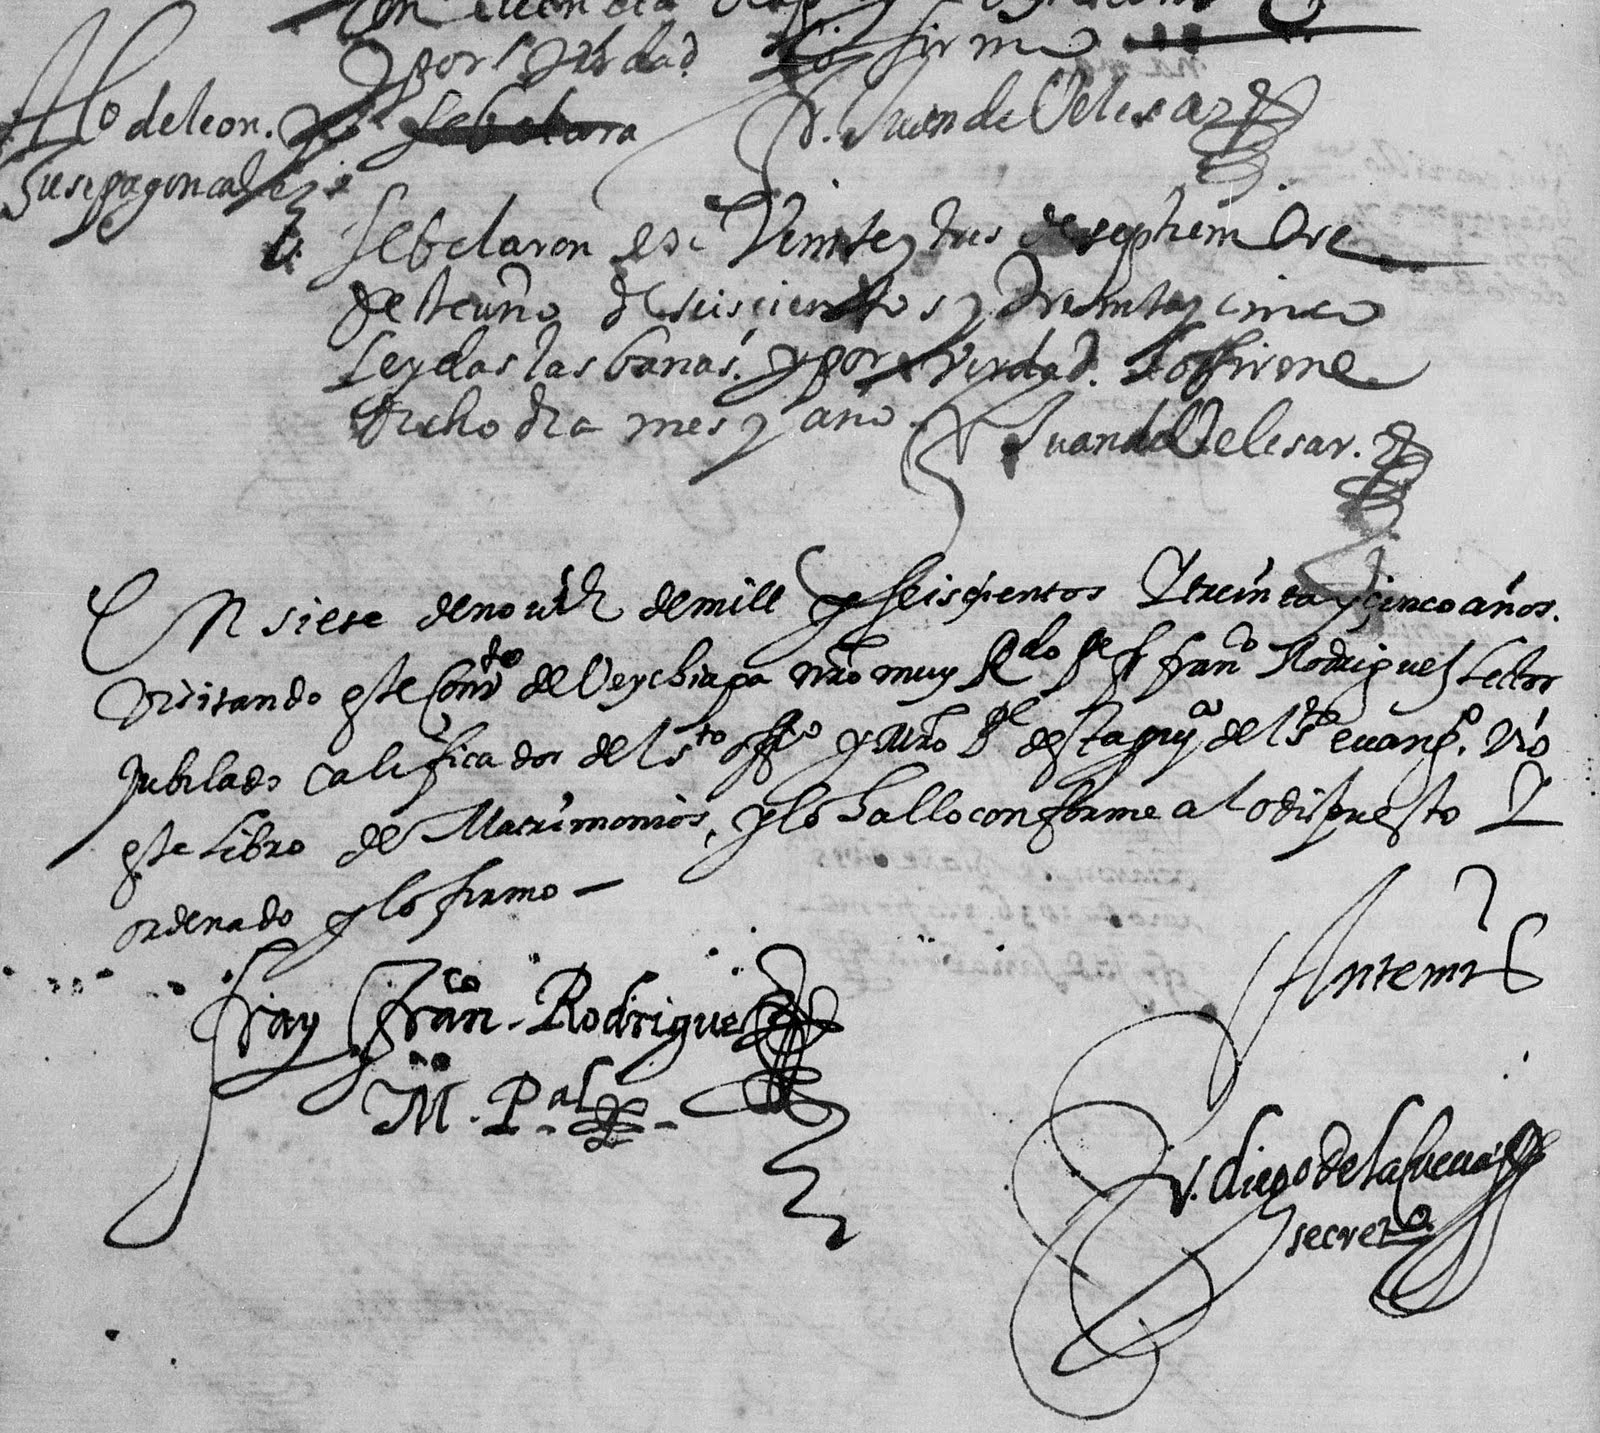 y por verdad lo firme
D. Juan de Velesar
Al.o de leon. y
Jusepa gonçalez
se belaron
se belaron en Veinte y tres de septiembre
deste año de seiscientos y treinta y cinco
Leydas las banas. y por verdad. Lo firme
dicho dia mes y año
Juan de Velesar.
En siete de nouie demill y seiscientos y treinta y cinco años.
Visitando este Conuto de Veychiapa nro muy Rdo Pe fr franco Rodriguez Lector
Jubilado Calificador del sto offio y Mro Pl desta prouª del sto euango. vio
este Libro de Matrimonios, y lo hallo conforme a lo dispuesto y
ordenado y lo firmo —
Fray Franco Rodriguez
M. Pal
Antemi
f. diego de la Cueua
secreto